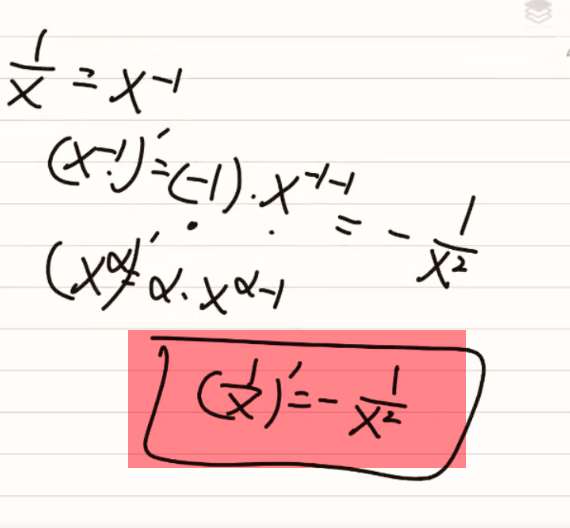 1/x = x⁻¹
(x⁻¹)′ = (-1) · x⁻¹⁻¹ = - 1/x²
(x^α)′ = α · x^α-1
(1/x)′ = - 1/x²